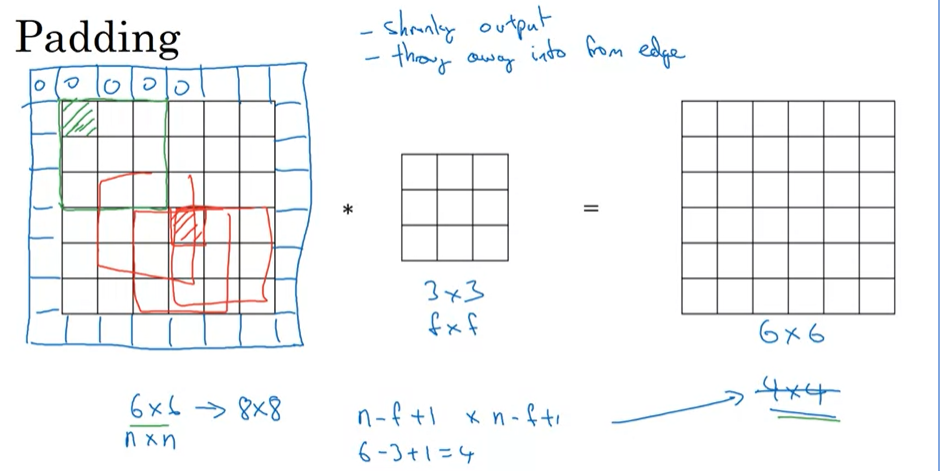 Padding
- shrinky output
- throw away info from edge
0 0 0 0 0
*
=
3 × 3
f × f
6 × 6
4 × 4
6 × 6 → 8 × 8
n × n
n - f + 1 × n - f + 1
6 - 3 + 1 = 4